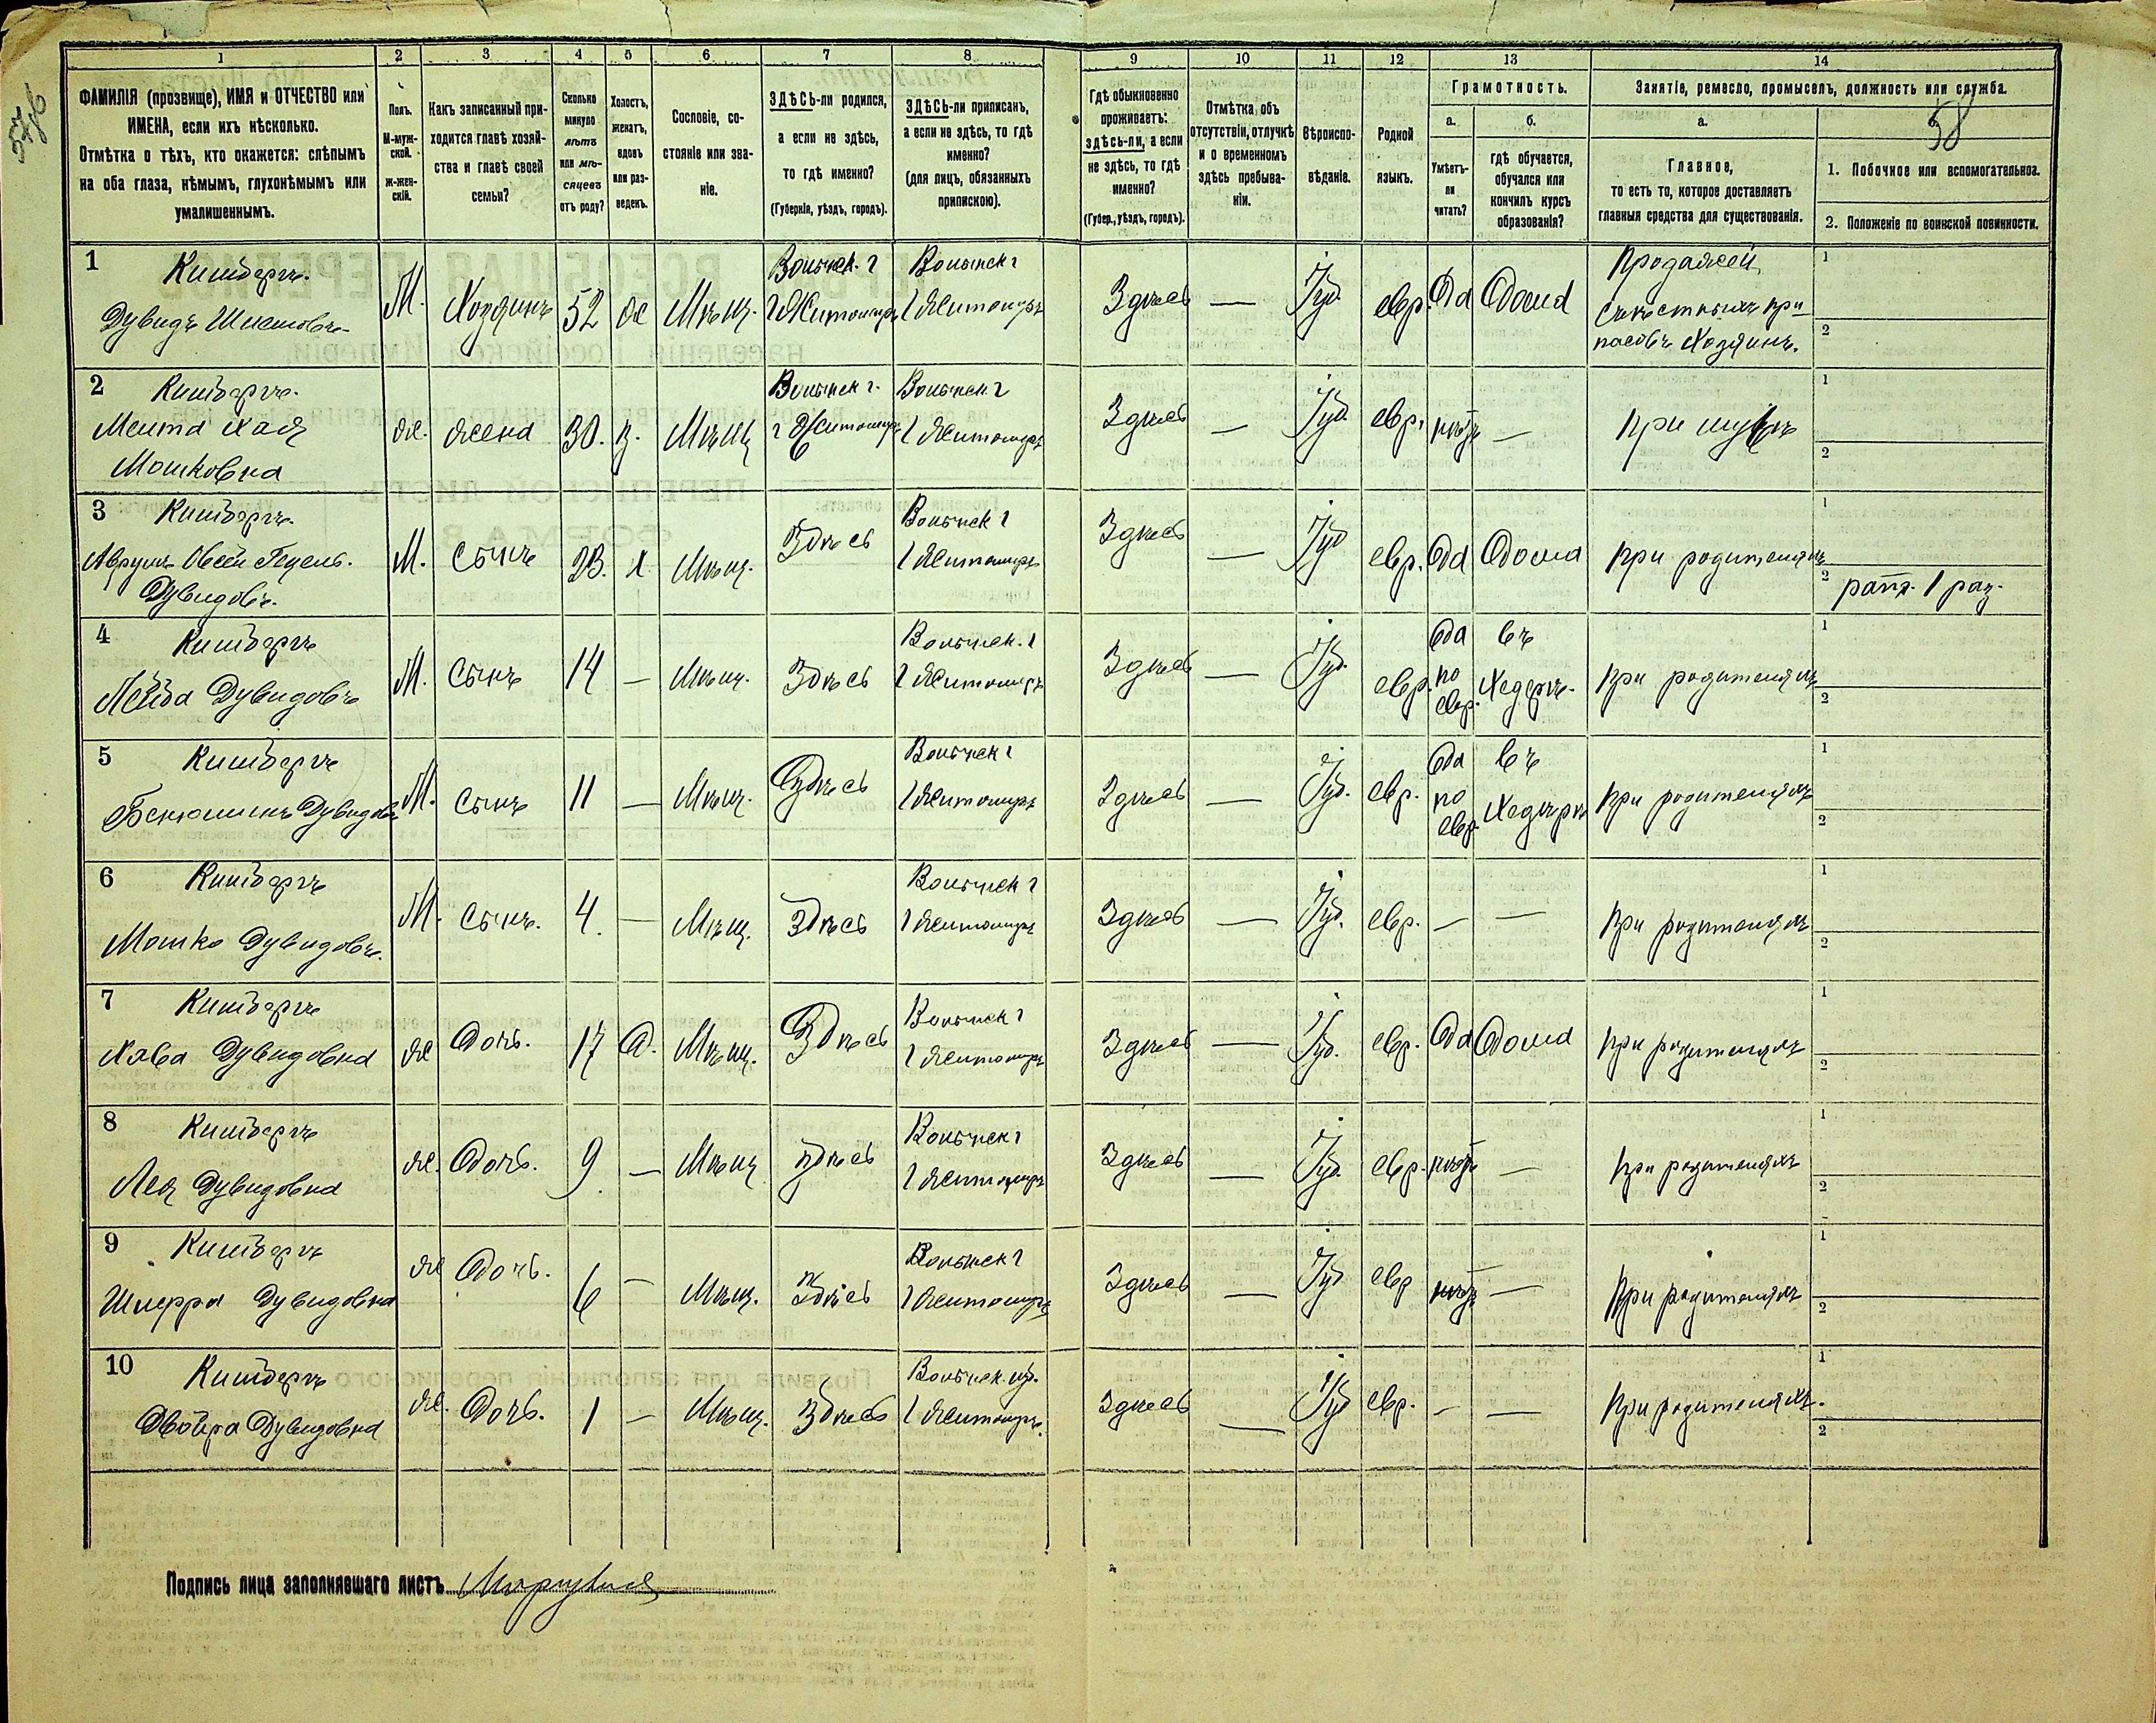 1 2 3 4 5 6 7 8 9 10 11 12 13 14
ФАМИЛІЯ (прозвище), ИМЯ и ОТЧЕСТВО или
ИМЕНА, если ихъ нѣсколько.
Отмѣтка о тѣхъ, кто окажется: слѣпымъ
на оба глаза, нѣмымъ, глухонѣмымъ или
умалишеннымъ.
Полъ.
М-муж-
ской.
Ж-жен-
скій.
Какъ записанный при-
ходится главѣ хозяй-
ства и главѣ своей
семьи?
Сколько
минуло
лѣтъ
или мѣ-
сяцевъ
отъ роду?
Холостъ,
женатъ,
вдовъ
или раз-
веденъ.
Сословіе, со-
стояніе или зва-
ніе.
ЗДѢСЬ-ли родился,
а если не здѣсь,
то гдѣ именно?
(Губернія, уѣздъ, городъ).
ЗДѢСЬ-ли приписанъ,
а если не здѣсь, то гдѣ
именно?
(для лицъ, обязанныхъ
припискою).
Гдѣ обыкновенно
проживаетъ:
здѣсь-ли, а если
не здѣсь, то гдѣ
именно?
(Губер., уѣздъ, городъ).
Отмѣтка объ
отсутствіи, отлучкѣ
и о временномъ
здѣсь пребыва-
ніи.
Вѣроиспо-
вѣданіе.
Родной
языкъ.
Грамотность.
а.
Умѣетъ-
ли
читать?
б.
гдѣ обучается,
обучался или
кончилъ курсъ
образованія?
Занятіе, ремесло, промыселъ, должность или служба.
а.
Главное,
то есть то, которое доставляетъ
главныя средства для существованія.
58
1. Побочное или вспомогательное.
2. Положеніе по воинской повинности.
1
Дувидъ
М. Хозяинъ 52 ж Мѣщ. Волынск. г г Житомиръ Волынск г г Житомиръ Здѣсь — Іуд. евр. Да Дома
Продажей
съѣстныхъ при-
пасовъ Хозяинъ.
1
2
2
Хая
Мошковна
ж. жена 30. з. Мѣщ Волынск г. г Житомиръ Волынск г г Житомиръ Здѣсь — Іуд евр. нѣтъ — При мужѣ
1
2
3
Дувидовъ.
М. Сынъ 23. х Мѣщ. Здѣсь Волынск г г Житомиръ Здѣсь — Іуд евр. Да Дома При родителяхъ
1
2 ратн. 1 раз.
4
Лейба Дувидовъ
М. Сынъ 14 — Мѣщ. Здѣсь Волынск. г г Житомиръ Здѣсь — Іуд. евр. Да по евр. въ Хедерѣ. При родителяхъ
1
2
5
Бенюминъ Дувидовъ
М. Сынъ 11 — Мѣщ. Здѣсь Волынск г г Житомиръ Здѣсь — Іуд. евр. Да по евр. въ Хедѣрѣ При родителяхъ
1
2
6
Мошко Дувидовъ.
М. Сынъ. 4. — Мѣщ. Здѣсь Волынск г г Житомиръ Здѣсь — Іуд. евр. — — При родителяхъ
1
2
7
Хава Дувидовна
ж Дочь. 17 Д. Мѣщ. Здѣсь Волынск г г Житомиръ Здѣсь — Іуд. евр. Да Дома При родителяхъ
1
2
8
Лея Дувидовна
ж. Дочь. 9. — Мѣщ Здѣсь Волынск г г Житомиръ Здѣсь — Іуд. евр. нѣтъ — При родителяхъ
1
2
9
Дувидовна
ж Дочь. 6 — Мѣщ. Здѣсь Волынск г г Житомиръ Здѣсь — Іуд евр нѣтъ — При родителяхъ
1
2
10
Двойра Дувидовна
ж. Дочь. 1 — Мѣщ. Здѣсь Волынск. г г Житомиръ. Здѣсь — Іуд евр. — — При родителяхъ.
1
2
Подпись лица заполнявшаго листъ